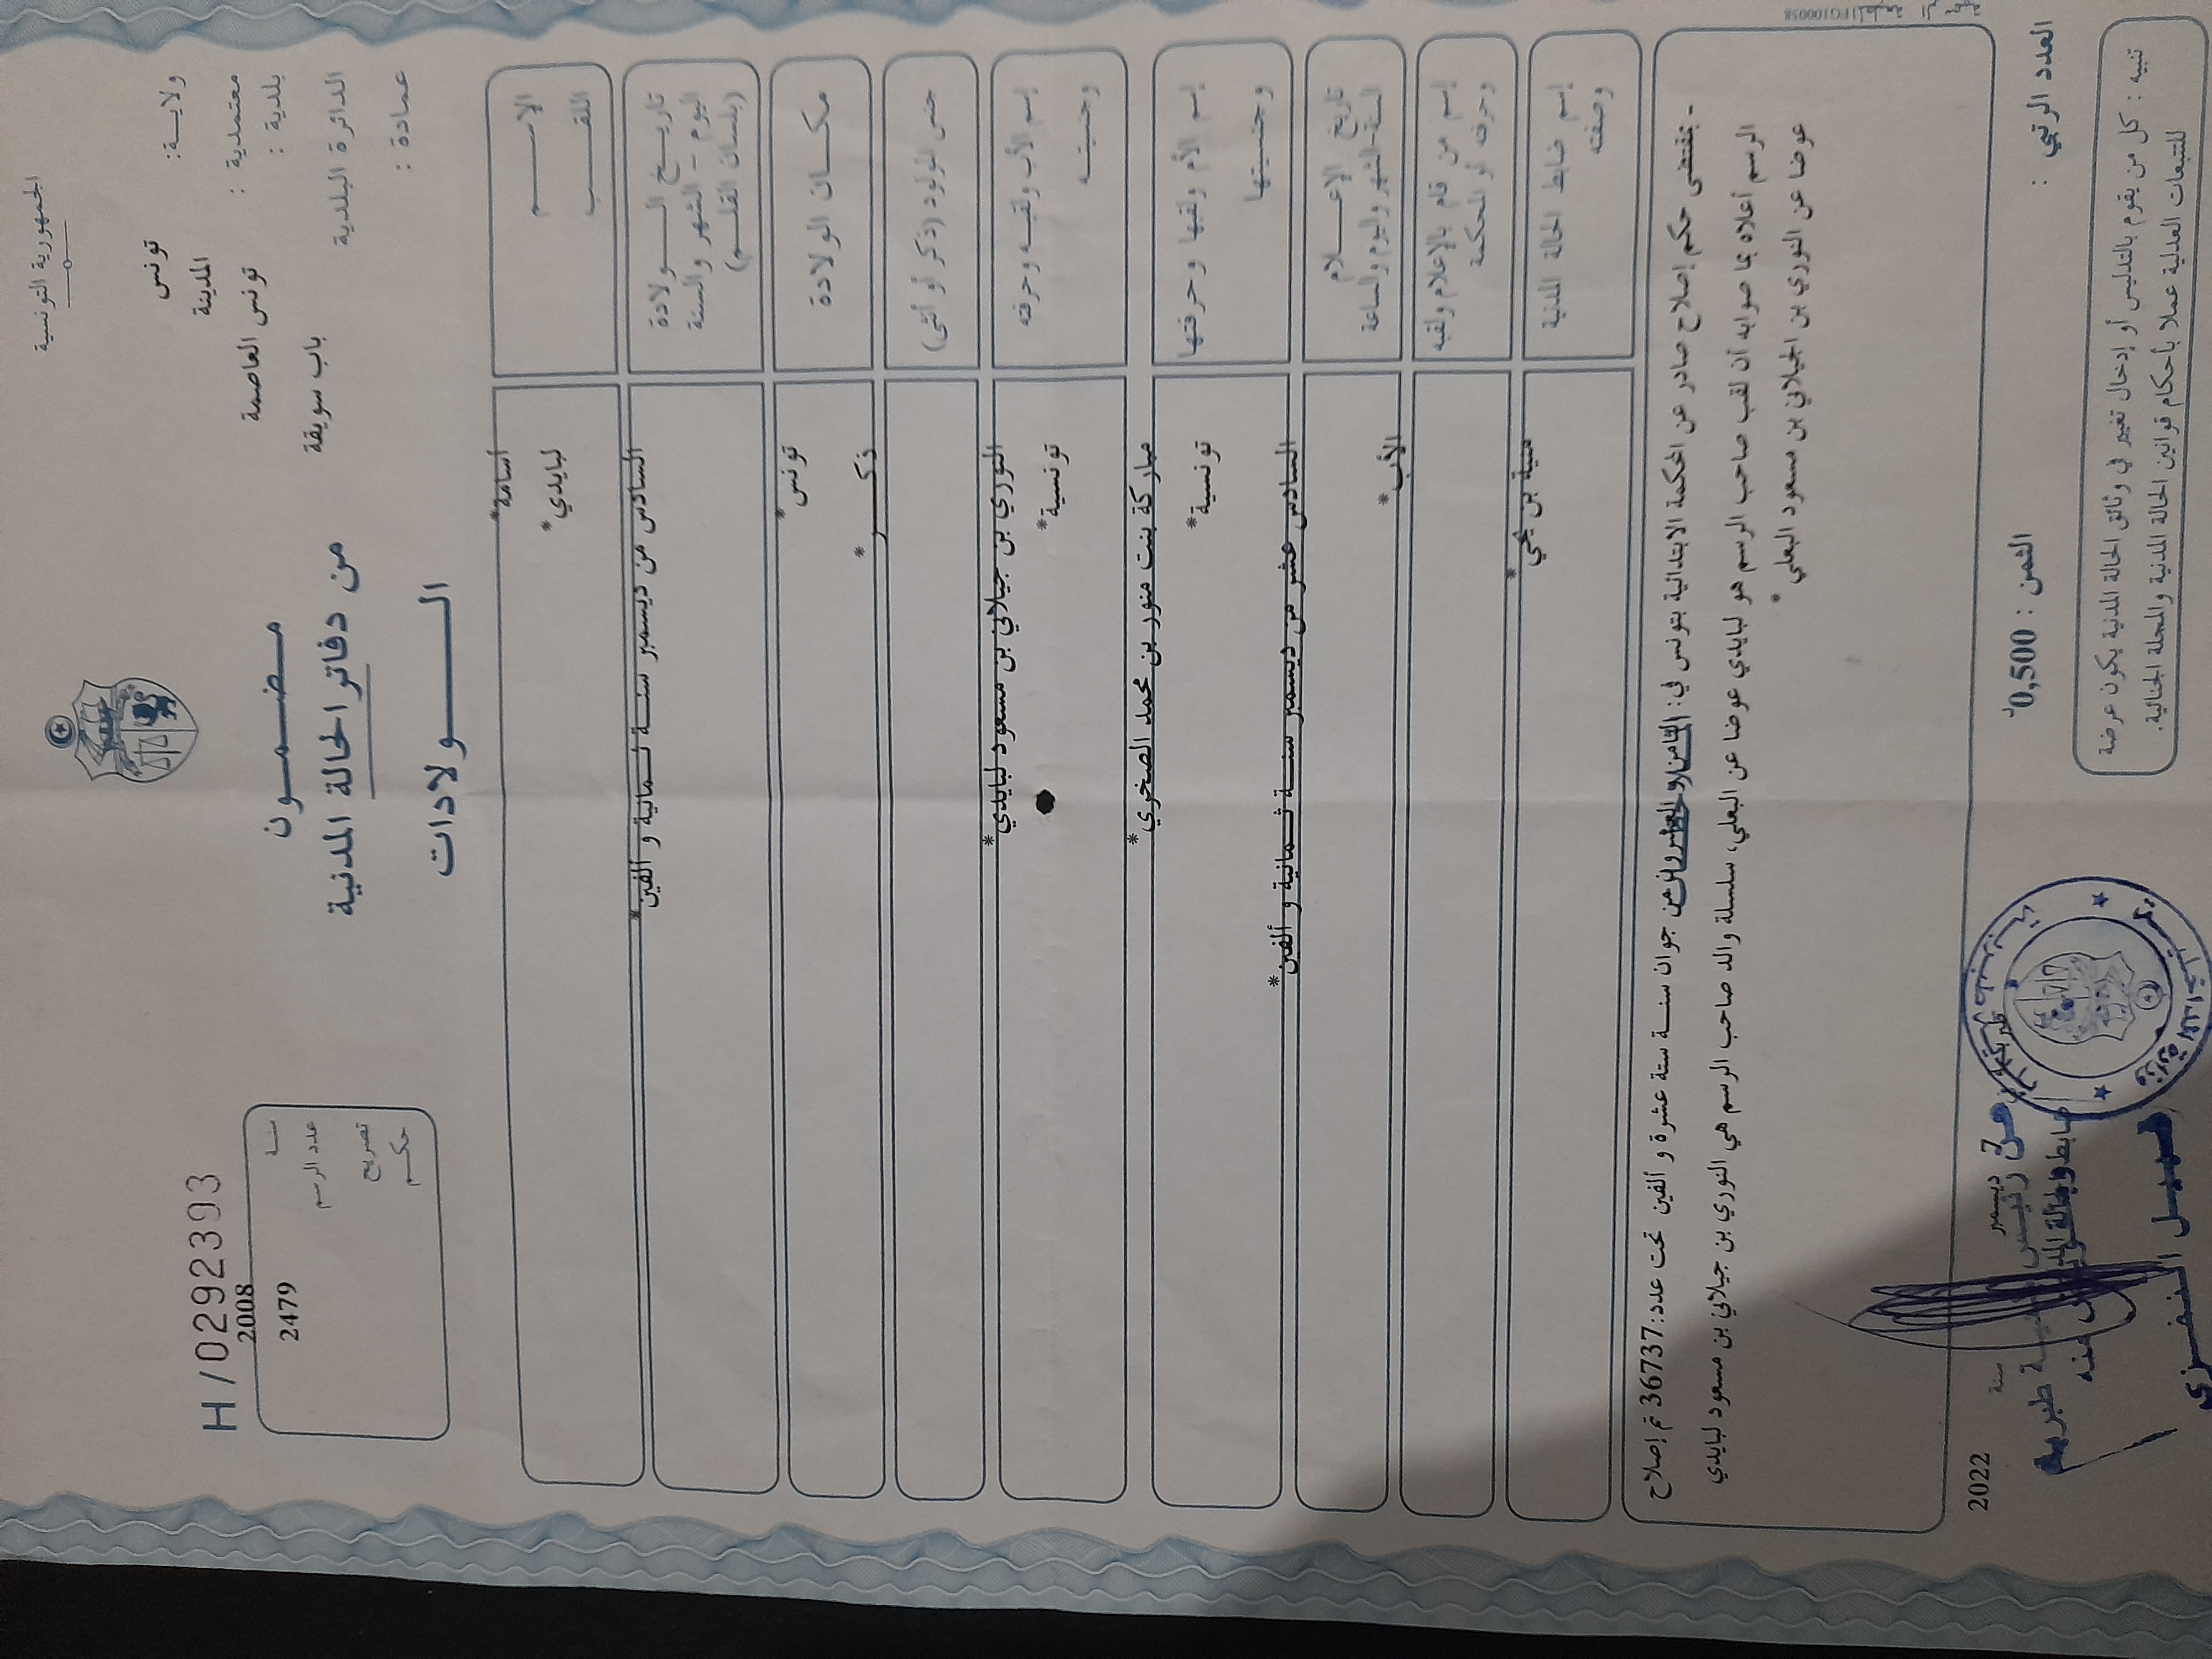 الجمهورية التونسية
ولايـــة: تونس
معتمدية : المدينة
بلدية : تونس العاصمة
الدائرة البلدية باب سويقة
عمادة :
مـــضـــمـــون
من دفاتر الحالة المدنية
الـــــولادات
H/0292393
سنـة 2008
عدد الرسم 2479
تصريح
حكـم
الإســـم أسامة*
اللقـــب لبايدي*
تاريـــخ الـــــولادة
اليوم - الشهر والسنة
(بلسان القلـــم)
السادس من ديسمبر سنـــة ثـــمانية و ألفين*
مكـــان الولادة تونس*
جنس المولود (ذكر أو أنثى) ذكـــــر*
إسم الأب ولقبـــه وحرفته النوري بن جيلاني بن مسعود لبايدي*
وجنسيتـــه تونسية*
إسم الأم ولقبها وحرفتها مباركة بنت منور بن محمد الصخري*
وجنسيتها تونسية*
تاريخ الإعـــــلام
السنة-الشهر واليوم والساعة
السادس عشر من ديسمبر سنـــة ثـــمانية و ألفين*
إسم من قام بالإعلام ولقبه الأب*
وحرفته أو المحكمة
إسم ضابط الحالة المدنية
وصفته
منية بن يحي*
- بمقتضى حكم إصلاح صادر عن المحكمة الابتدائية بتونس في: الثامن والعشرون من جوان سنـــة ستة عشرة و ألفين تحت عدد:36737 تم إصلاح
الرسم أعلاه بما صوابه أن لقب صاحب الرسم هو لبايدي عوضا عن البعلي، سلسلة والد صاحب الرسم هي النوري بن جيلاني بن مسعود لبايدي
عوضا عن النوري بن الجيلاني بن مسعود البعلي*
العدد الرتبي :
الثمن : 0,500د
ديسمبر سنة 2022
تنبيه : كل من يقوم بالتدليس أو إدخال تغيير في وثائق الحالة المدنية يكون عرضة
للتتبعات العدلية عملا بأحكام قوانين الحالة المدنية والمجلة الجنائية.